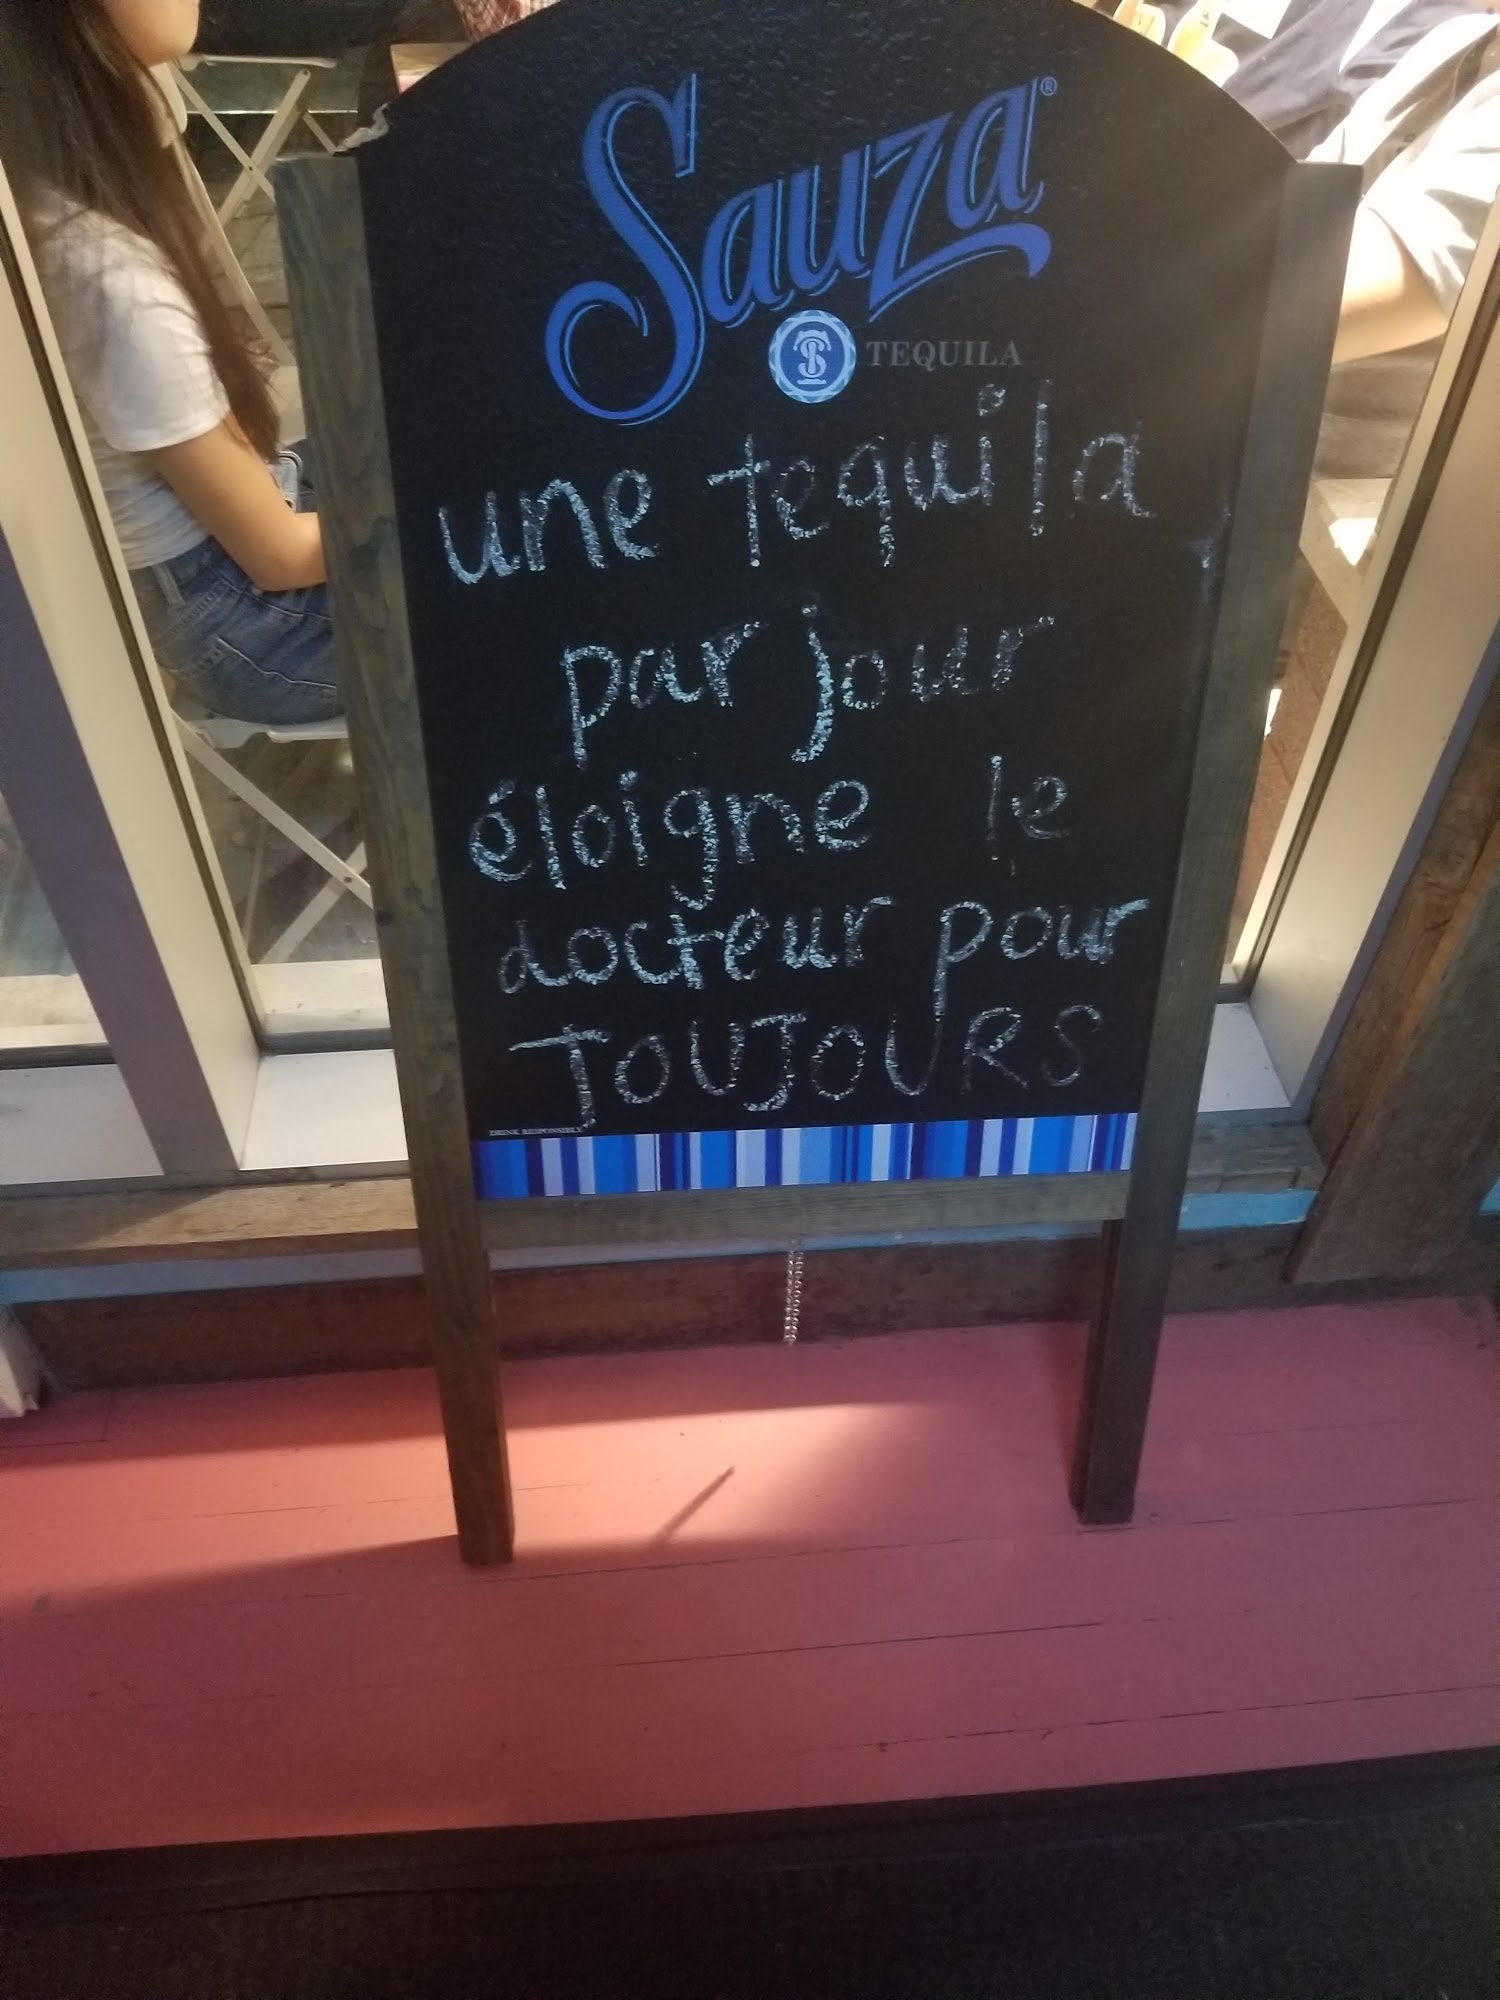 Sauza®
TEQUILA
une tequila
par jour
éloigne le
docteur pour
TOUJOURS
DRINK RESPONSIBLY.